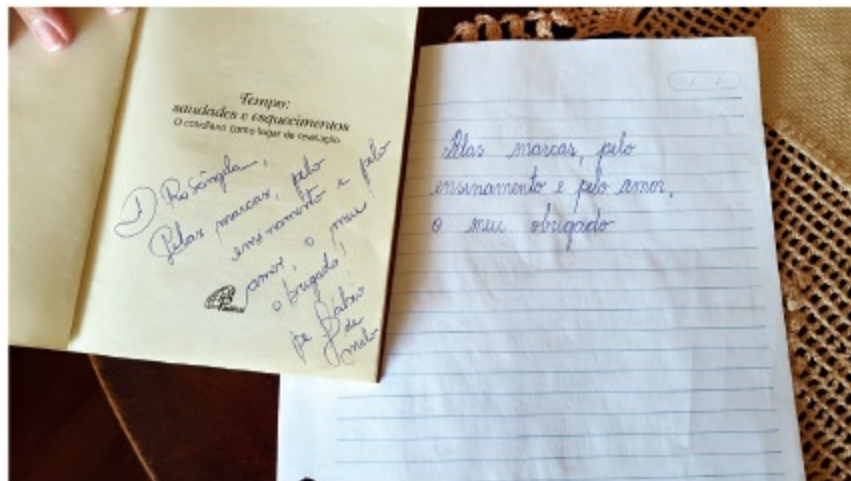 Tempo:
saudades e esquecimentos
O cotidiano como lugar de revelação
D. Rosângela,
Pelas marcas, pelo
ensinamento e pelo
amor, o meu
obrigado!
pe Fábio
de
melo
Pelas marcas, pelo
ensinamento e pelo amor,
o meu obrigado